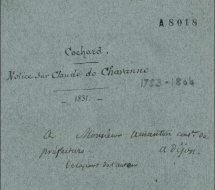 A 8018
Cochard.
Notice sur Claude de Chavanne
1753-1804
- 1831. -
A Monsieur amanton
préfecture a dijon.